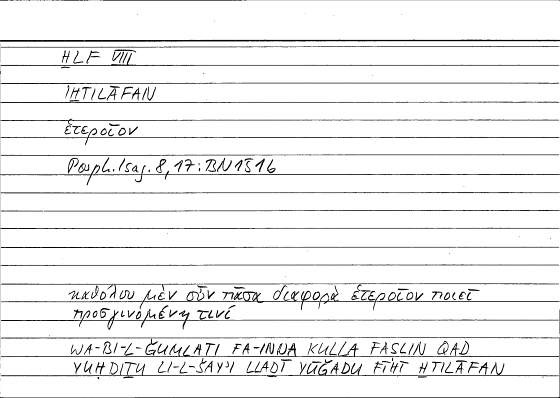 ḪLF VIII
IḪTILĀFAN
ἑτεροῖον
Porph. Isag. 8, 17 : BN 1516
καθόλου μὲν οὖν πᾶσα διαφορὰ ἑτεροῖον ποιεῖ
προσγινομένη τινί
WA-BI-L-ǦUMLATI FA-INNA KULLA FAṢLIN QAD
YUḤDIṮU LI-L-ŠAYʾI LLAḎĪ YŪǦADU FĪHI ḪTILĀFAN